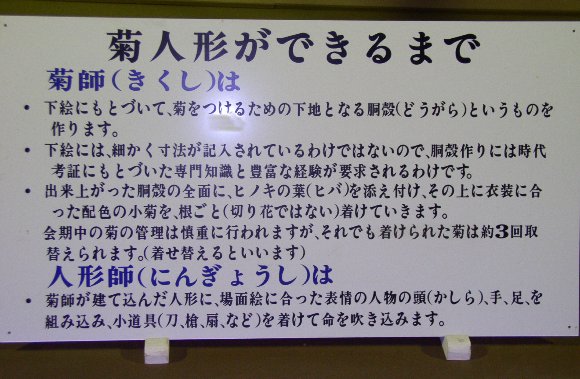 菊人形ができるまで
菊師(きくし)は
• 下絵にもとづいて、菊をつけるための下地となる胴殻(どうがら)というものを
作ります。
• 下絵には、細かく寸法が記入されているわけではないので、胴殻作りには時代
考証にもとづいた専門知識と豊富な経験が要求されるわけです。
• 出来上がった胴殻の全面に、ヒノキの葉(ヒバ)を添え付け、その上に衣装に合
った配色の小菊を、根ごと(切り花ではない)着けていきます。
会期中の菊の管理は慎重に行われますが、それでも着けられた菊は約3回取
替えられます。(着せ替えるといいます)
人形師(にんぎょうし)は
• 菊師が建て込んだ人形に、場面絵に合った表情の人物の頭(かしら)、手、足、を
組み込み、小道具(刀、槍、扇、など)を着けて命を吹き込みます。